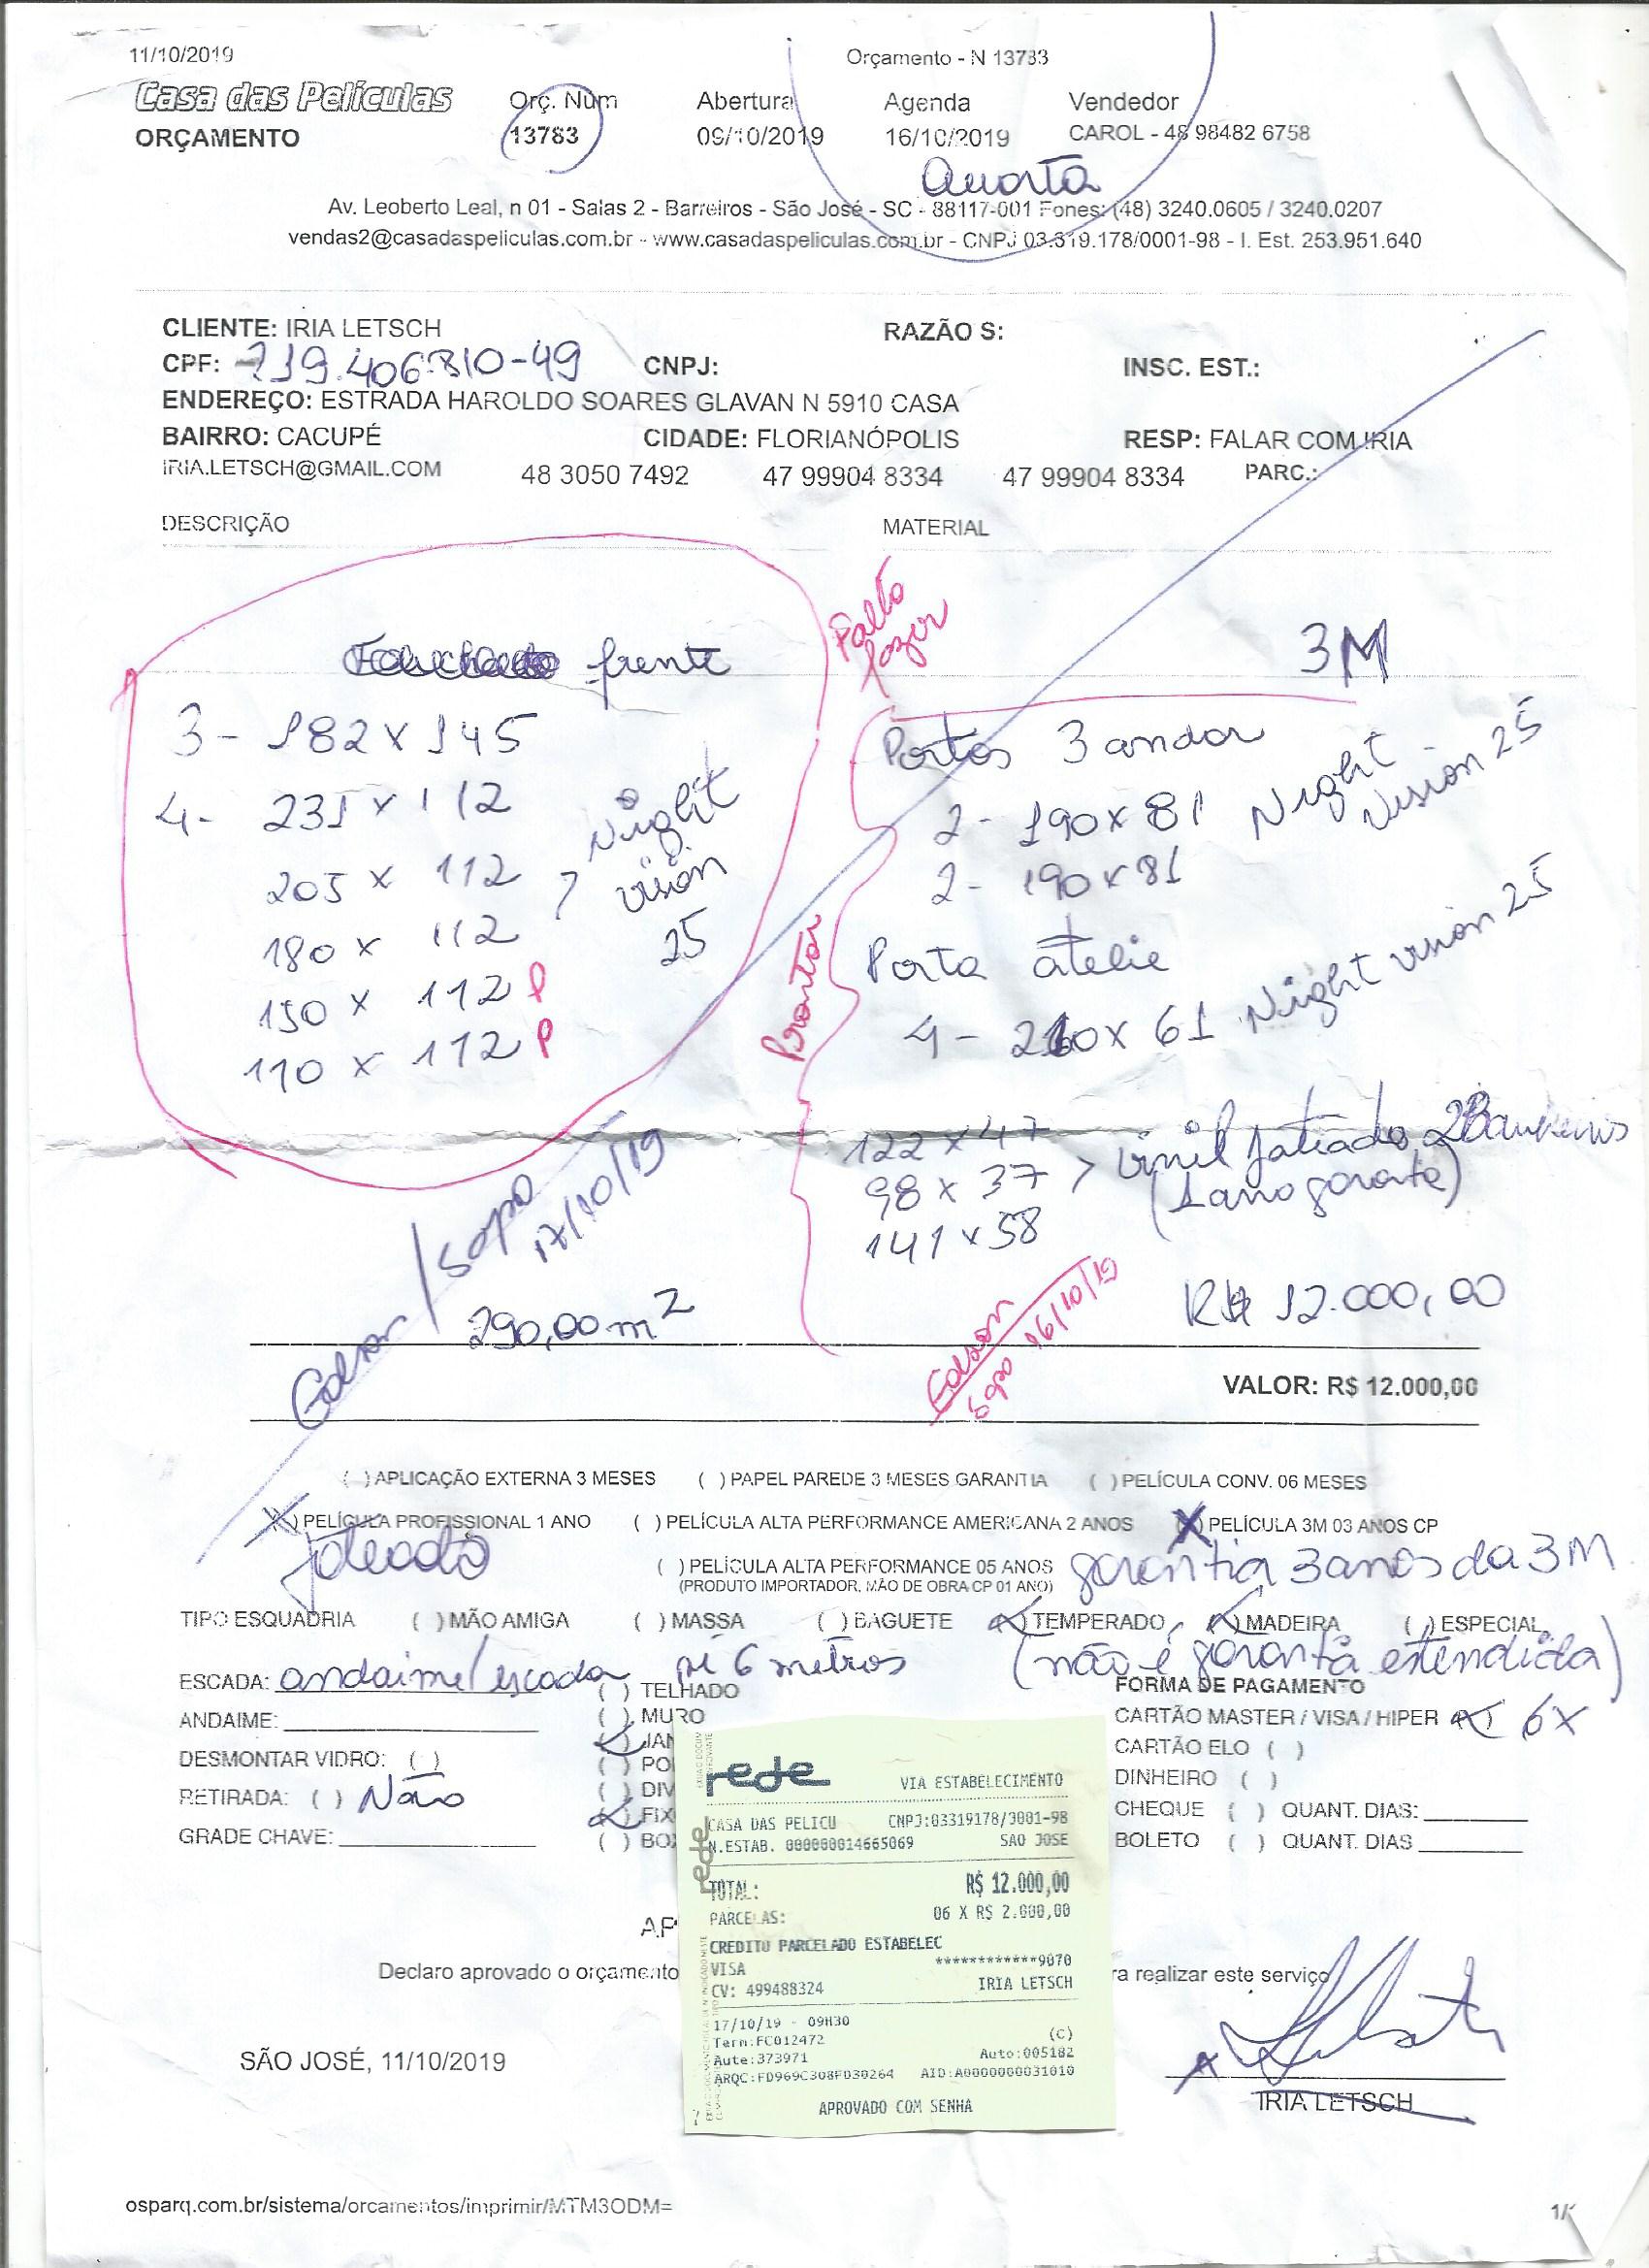 11/10/2019 Orçamento - N 13783
Casa das Películas Orç. Num Abertura Agenda Vendedor
ORÇAMENTO 13783 09/10/2019 16/10/2019 CAROL - 48 98482 6758
Quarta
Av. Leoberto Leal, n 01 - Salas 2 - Barreiros - São José - SC - 88117-001 Fones: (48) 3240.0605 / 3240.0207
vendas2@casadaspeliculas.com.br - www.casadaspeliculas.com.br - CNPJ 03.319.178/0001-98 - I. Est. 253.951.640
CLIENTE: IRIA LETSCH RAZÃO S:
CPF: 719.406.810-49 CNPJ: INSC. EST.:
ENDEREÇO: ESTRADA HAROLDO SOARES GLAVAN N 5910 CASA
BAIRRO: CACUPÉ CIDADE: FLORIANÓPOLIS RESP: FALAR COM IRIA
IRIA.LETSCH@GMAIL.COM 48 3050 7492 47 99904 8334 47 99904 8334 PARC.:
DESCRIÇÃO MATERIAL
Falta fazer
frente
3M
3 - 182 x 145
4 - 231 x 112
205 x 112
180 x 112
150 x 112 P
110 x 112 P
Night vision 25
Portas 3 andar
2 - 190 x 81 Night Vision 25
2 - 190 x 81
Porta atelie
4 - 210 x 61 Night vision 25
Prontas
122 x 47
98 x 37 > vinil jateado 2 Banheiros
(1 ano garantia)
141 x 58
Edson / Sapo 17/10/19
290,00 m2
Edson Sapo 16/10/19
R$ 12.000,00
VALOR: R$ 12.000,00
( ) APLICAÇÃO EXTERNA 3 MESES ( ) PAPEL PAREDE 3 MESES GARANTIA ( ) PELÍCULA CONV. 06 MESES
(X) PELÍCULA PROFISSIONAL 1 ANO ( ) PELÍCULA ALTA PERFORMANCE AMERICANA 2 ANOS (X) PELÍCULA 3M 03 ANOS CP
Jateado
( ) PELÍCULA ALTA PERFORMANCE 05 ANOS garantia 3 anos da 3M
(PRODUTO IMPORTADOR, MÃO DE OBRA CP 01 ANO)
TIPO ESQUADRIA ( ) MÃO AMIGA ( ) MASSA ( ) BAGUETE (X) TEMPERADO (X) MADEIRA ( ) ESPECIAL
(não é garantia estendida)
ESCADA: andaime/escada pé 6 metros
( ) TELHADO FORMA DE PAGAMENTO
ANDAIME: ( ) MURO CARTÃO MASTER / VISA / HIPER (X) 6x
DESMONTAR VIDRO: ( ) (X) JAN CARTÃO ELO ( )
( ) PO
RETIRADA: ( ) Não ( ) DIV DINHEIRO ( )
(X) FIX CHEQUE ( ) QUANT. DIAS:
GRADE CHAVE: ( ) BO BOLETO ( ) QUANT. DIAS
rede
rede
VIA ESTABELECIMENTO
CASA DAS PELICU CNPJ:03319178/0001-98
N.ESTAB. 000000014665069 SAO JOSE
TOTAL: R$ 12.000,00
PARCELAS: 06 X R$ 2.000,00
CREDITO PARCELADO ESTABELEC
VISA ************9070
CV: 499488324 IRIA LETSCH
17/10/19 - 09H30
Term:FC012472 (C)
Aute:373971 Auto:005182
ARQC:FD969C308F030264 AID:A0000000031010
APROVADO COM SENHA
AP
Declaro aprovado o orçamento ra realizar este serviço
SÃO JOSÉ, 11/10/2019
IRIA LETSCH
osparq.com.br/sistema/orcamentos/imprimir/MTM3ODM= 1/1